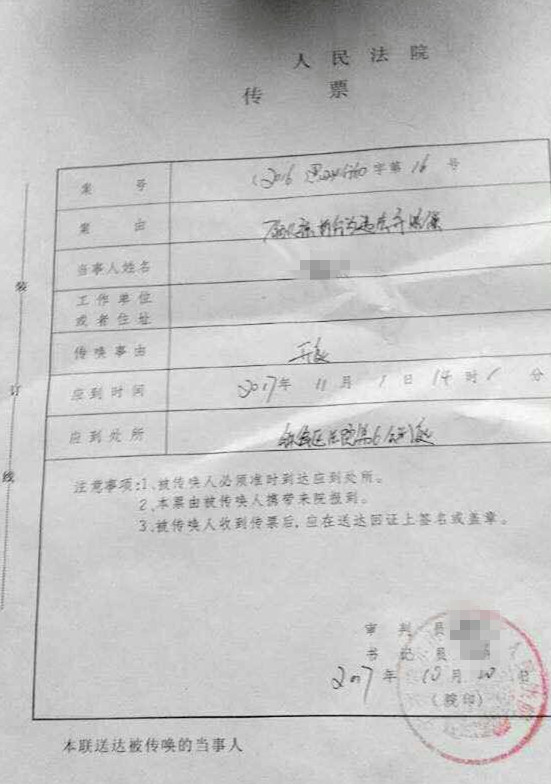 人民法院
传票
案号 (2016 字第16号
案由
当事人姓名
工作单位
或者住址
传唤事由 开庭
应到时间 2017年11月1日14时 分
应到处所
注意事项:1、被传唤人必须准时到达应到处所。
2、本票由被传唤人携带来院报到。
3、被传唤人收到传票后,应在送达回证上签名或盖章。
审判员
书记员
2017年10月20日
(院印)
本联送达被传唤的当事人
装
订
线